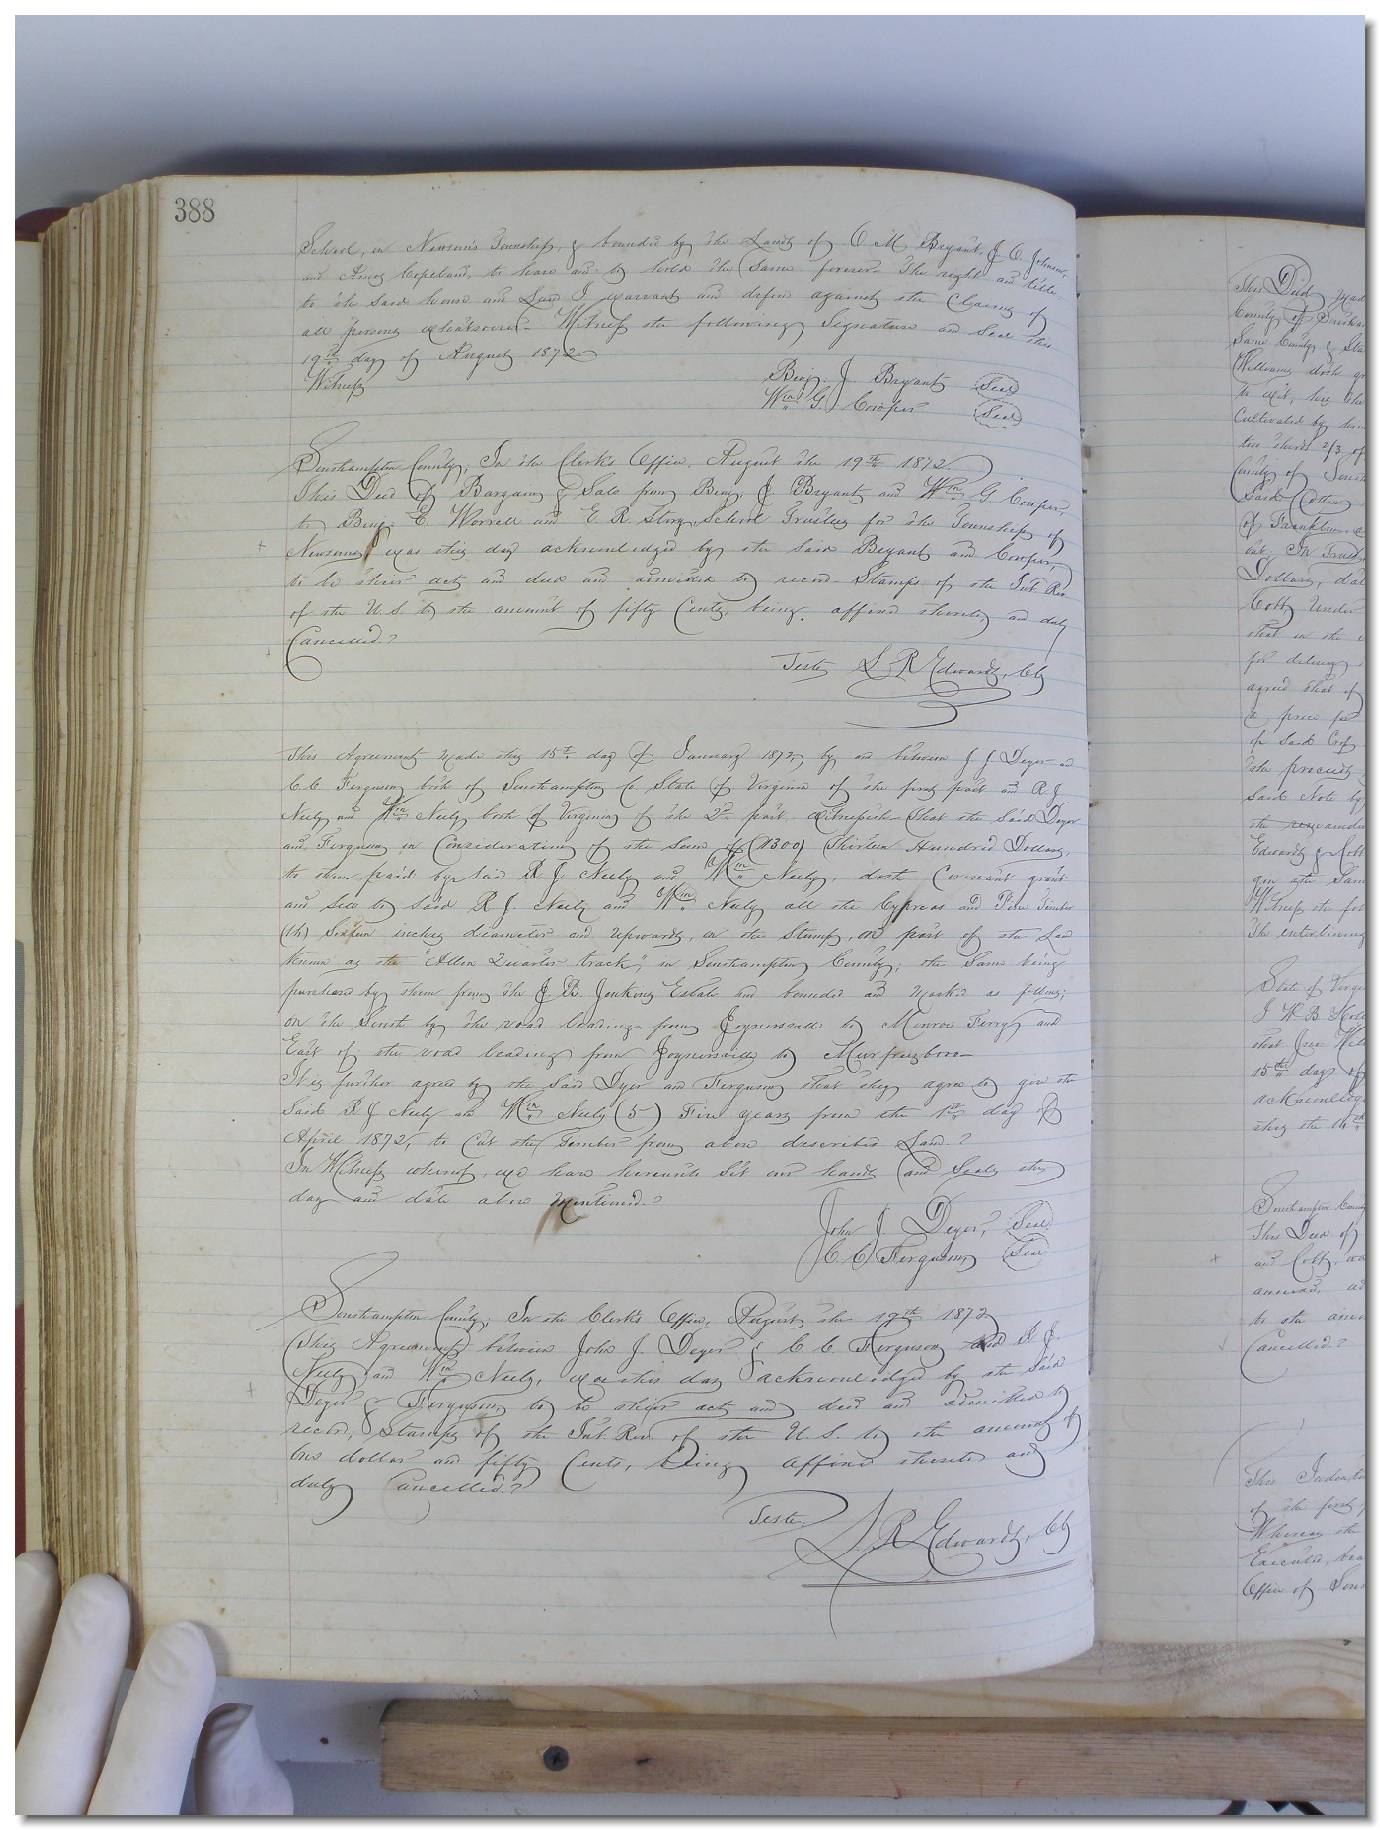 388
School, in Newsoms Township, & bounded by the Lands of O M Bryant, J. C. Johnson,
and Amos Copeland, to have and to hold the same forever. The right and title
to the said house and Land I warrant and defend against the Claims of
all persons whatsoever. Witness the following Signature and Seal this
19th day of August 1872
Witness
Benj. J. Bryant Seal
Wm G. Cooper Seal
Southampton County; In the Clerk's Office, August the 19th 1872.
This Deed of Bargain & Sale from Benj. J. Bryant and Wm G. Cooper,
to Benj. E. Worrell and E. R. Story, School Trustees for the Township of
Newsoms, was this day acknowledged by the said Bryant and Cooper,
to be their act and deed and admitted to record. Stamps of the Int Rev
of the U.S to the amount of fifty Cents, being affixed thereto, and duly
Cancelled.
Teste L. R. Edwards, Clk
This Agreement made this 15th day of January 1872, by and between J. J. Deyer and
C. C. Ferguson both of Southampton Co State of Virginia of the first part and R. J.
Neely and Wm Neely both of Virginia of the 2nd part, witnesseth that the said Deyer
and Ferguson in Consideration of the Sum of (1300) Thirteen Hundred Dollars,
to them paid by said R. J. Neely and Wm Neely, doth Covenant grant
and sell to said R J. Neely and Wm Neely all the Cypress and Pine Timber
(16) Sixteen inches diameter and Upwards, on the Stump, on part of the Land
Known as the "Allen Quarter track," in Southampton County; the same being
purchased by them from the J. R. Jenkins Estate and bounded and marked as follows;
on the South by the road leading from Joynersville to Monroe Ferry and
East of the road leading from Joynersville to Murfreesboro
It is further agreed by the said Dyer and Ferguson that they agree to give the
Said R J Neely and Wm Neely (5) Five years from the 1st day of
April 1872, to Cut the Timber from above described Land.
In Witness whereof, we have hereunto Set our hands and Seals this
day and date above mentioned.
John J. Deyer, Seal
C. C. Ferguson Seal
Southampton County; In the Clerk's Office, August the 19th 1872
This Agreement between John J. Deyer & C. C. Ferguson and R. J.
Neely and Wm Neely, was this day acknowledged by the said
Deyer & Ferguson to be their act and deed and admitted to
record, Stamps of the Int. Rev. of the U. S. to the amount of
One dollar and fifty Cents, being affixed thereto and
duly Cancelled.
Teste.
L. R. Edwards, Clk
This Deed
County of
Same County & Sta
Williams doth
to wit,
Cultivated by
two thirds 2/3 of
County of
Said Cotton
of Franklin
Trust
Dollars,
Cobb, Under
that in the
for delivery
agreed that if
a price
of Said Crop
the proceeds
Said Note by
Edwards & Cobb
Witness the fol
The interlining
State of Virg
I W. B.
that
15th day of
acknowledge
Southampton Coun
This Deed of
and Cobb,
annexed,
to the amou
Cancelled.
This Indentu
of the first
Whereas the
Executed,
Office of Sou